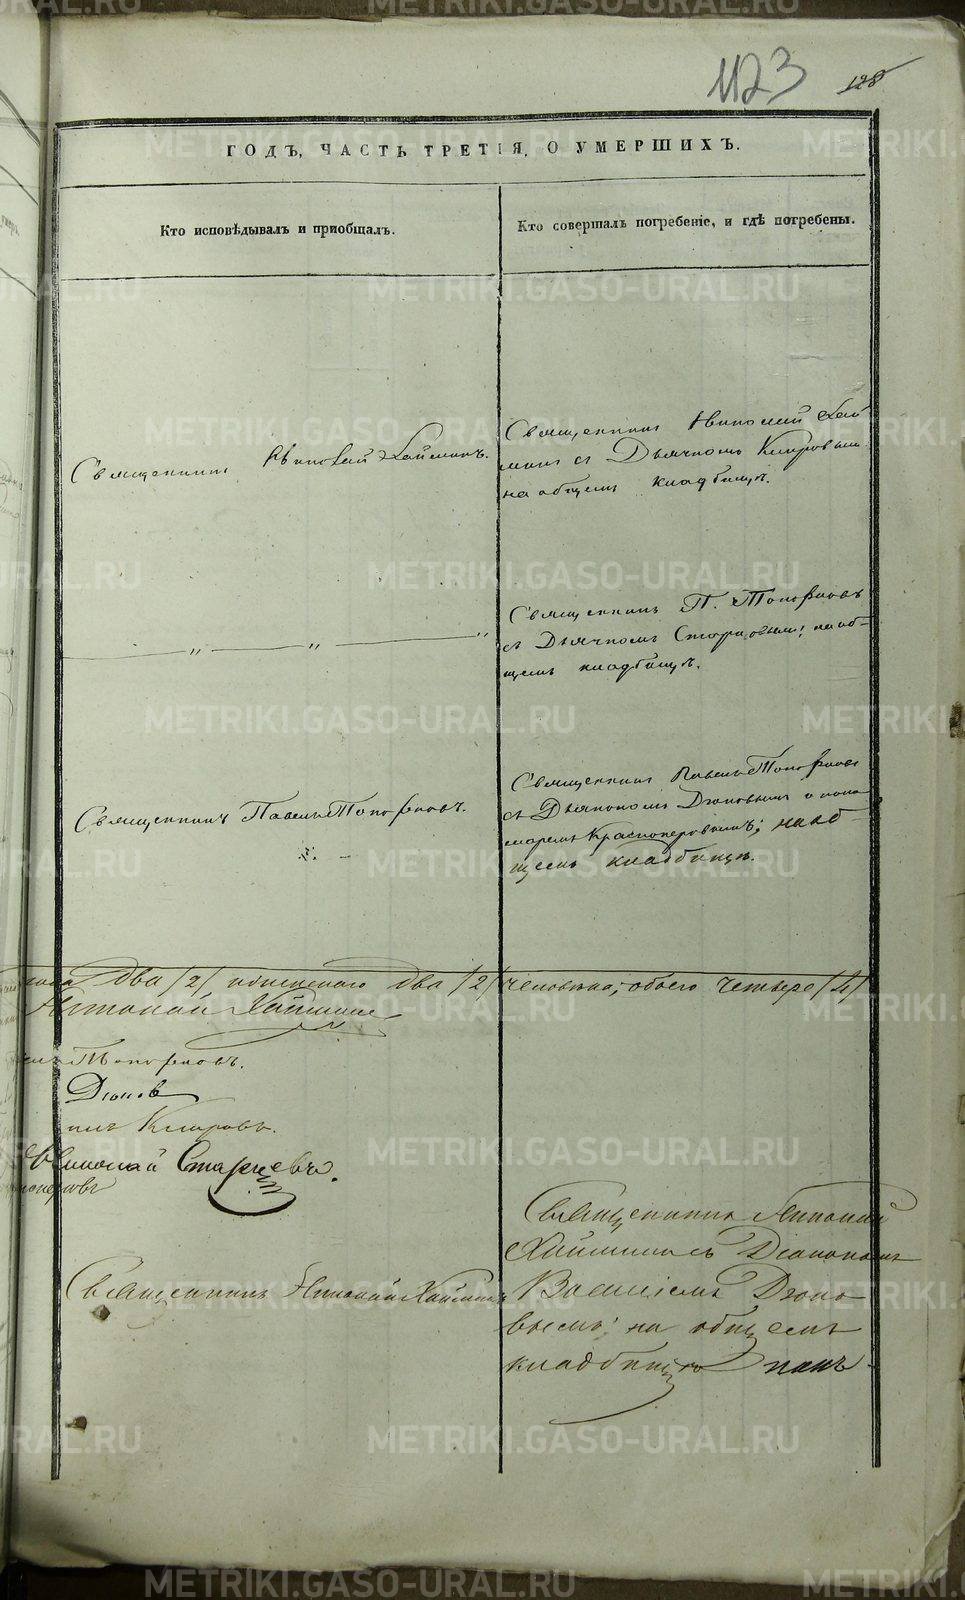 123
128
ГОДЪ, ЧАСТЬ ТРЕТІЯ, О УМЕРШИХЪ.
Кто исповѣдывалъ и приобщалъ.
Кто совершалъ погребеніе, и гдѣ погребены.
Священникъ Николай
Священникъ Николай
съ Дьячкомъ
на общемъ кладбищѣ.
Священникъ П. Топорковъ
съ Дьячкомъ Старцовымъ; на об-
щемъ кладбищѣ.
Священникъ Павелъ Топорковъ.
Священникъ Павелъ Топорковъ
съ Дьякономъ Дюковымъ и поно-
маремъ Красноперовымъ; на об-
щемъ кладбищѣ.
два /2/ женскаго два /2/ человѣка, обоего четверо /4/
Николай
Топорковъ.
Дюковъ
Николай Старцевъ.
Священникъ Николай
Священникъ Николай
съ Діакономъ
Василіемъ Дюко-
вымъ; на общемъ
кладбищѣ
METRIKI.GASO-URAL.RU